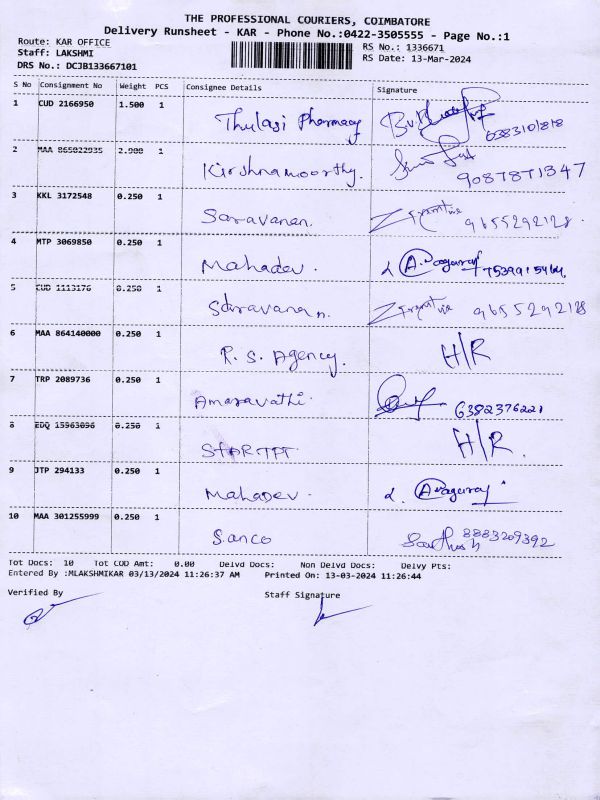 THE PROFESSIONAL COURIERS, COIMBATORE
Delivery Runsheet - KAR - Phone No.:0422-3505555 - Page No.:1
Route: KAR OFFICE RS No.: 1336671
Staff: LAKSHMI RS Date: 13-Mar-2024
DRS No.: DCJB133667101
S No Consignment No Weight PCS Consignee Details Signature
1 CUD 2166950 1.500 1 Thulasi Pharmacy
2 MAA 865022935 2.900 1 Kirshnamoorthy. 9087871347
3 KKL 3172548 0.250 1 Saravanan. 9655292128.
4 MTP 3069850 0.250 1 Mahadev.
5 CUD 1113176 0.250 1 Saravanan. 9655292128
6 MAA 864140000 0.250 1 R. S. Agency. H/R
7 TRP 2089736 0.250 1 Amaravathi. 6382376221
8 EDQ 15963096 0.250 1 H/R.
9 JTP 294133 0.250 1 Mahadev.
10 MAA 301255999 0.250 1 Sanco 8883209392
Tot Docs: 10 Tot COD Amt: 0.00 Delvd Docs: Non Delvd Docs: Delvy Pts:
Entered By :MLAKSHMIKAR 03/13/2024 11:26:37 AM Printed On: 13-03-2024 11:26:44
Verified By Staff Signature